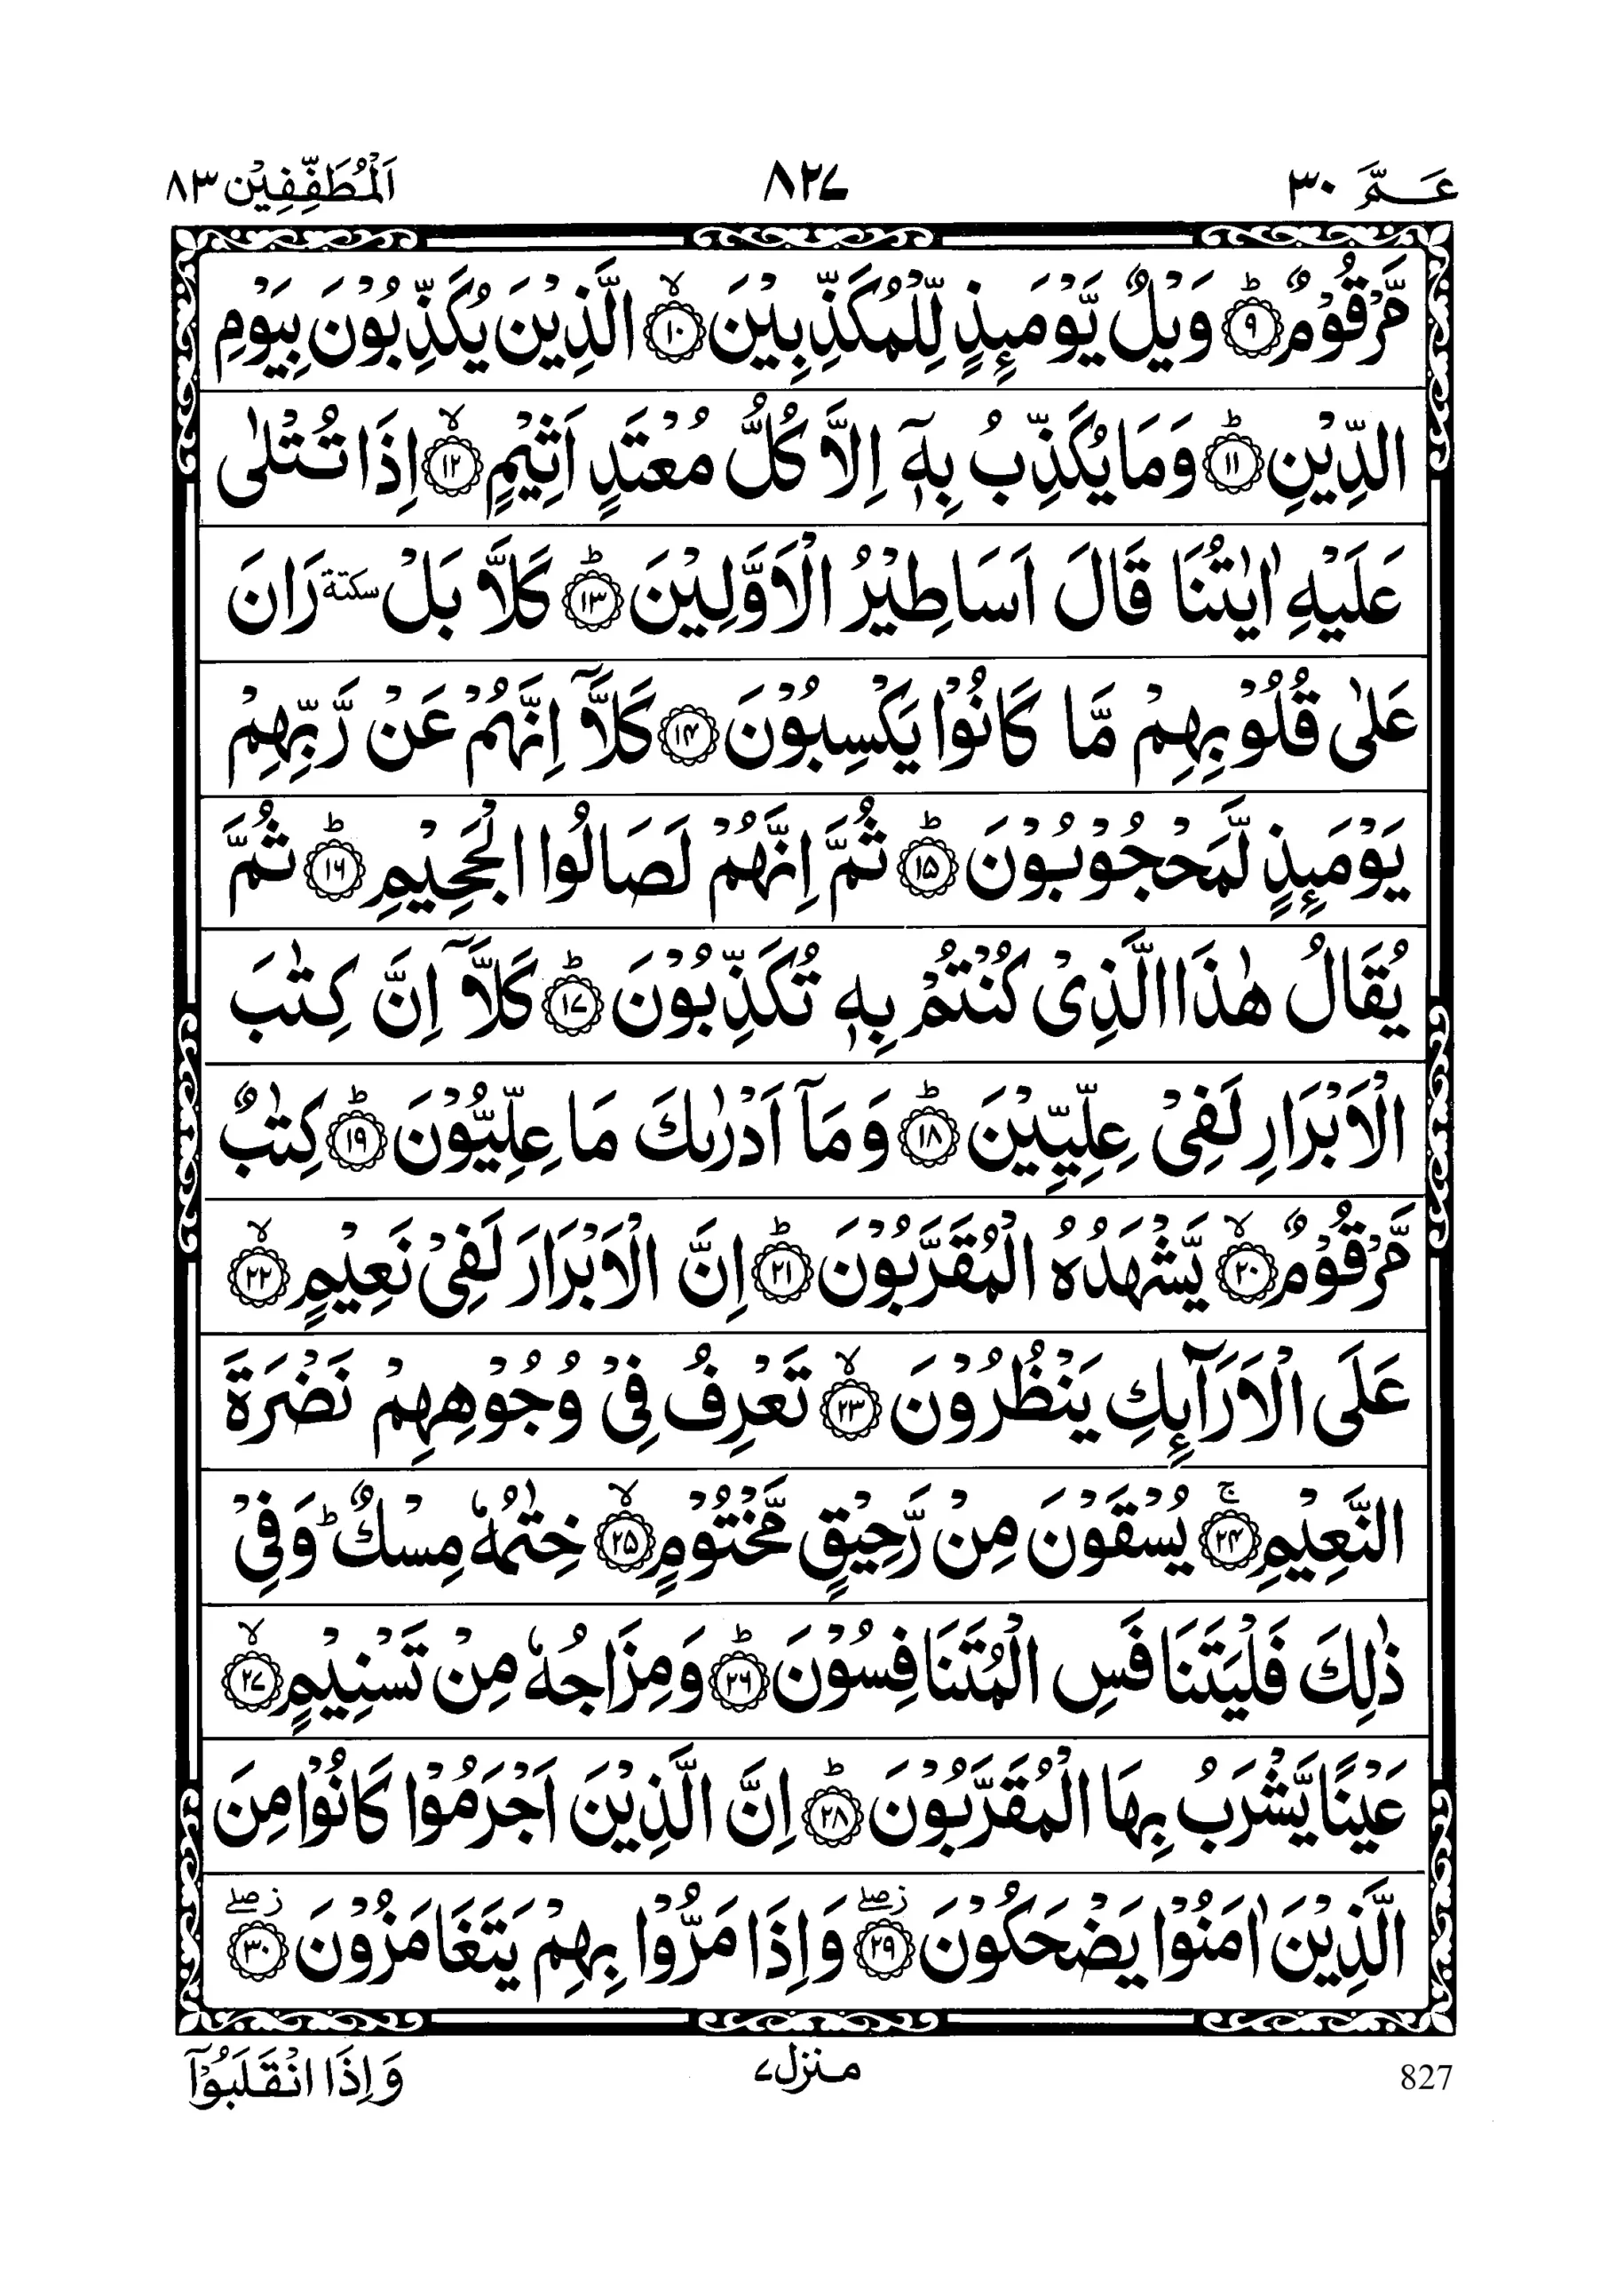 عَـمَّ ۳۰
۸۲۷
اَلْمُطَفِّفِيْن ۸۳
مَّرْقُوْمٌ ؕ‏﴿۹﴾ وَيْلٌ يَّوْمَئِذٍ لِّلْمُكَذِّبِيْنَ ۙ‏﴿۱۰﴾ الَّذِيْنَ يُكَذِّبُوْنَ بِيَوْمِ
الدِّيْنِ ؕ‏﴿۱۱﴾ وَمَا يُكَذِّبُ بِهٖۤ اِلَّا كُلُّ مُعْتَدٍ اَثِيْمٍ ۙ‏﴿۱۲﴾ اِذَا تُتْلٰى
عَلَيْهِ اٰيٰتُنَا قَالَ اَسَاطِيْرُ الْاَوَّلِيْنَ ؕ‏﴿۱۳﴾ كَلَّا بَلْ سكتة رَانَ
عَلٰى قُلُوْبِهِمْ مَّا كَانُوْا يَكْسِبُوْنَ ﴿۱۴﴾ كَلَّاۤ اِنَّهُمْ عَنْ رَّبِّهِمْ
يَوْمَئِذٍ لَّمَحْجُوْبُوْنَ ؕ‏﴿۱۵﴾ ثُمَّ اِنَّهُمْ لَصَالُوا الْجَحِيْمِ ؕ‏﴿۱۶﴾ ثُمَّ
يُقَالُ هٰذَا الَّذِىْ كُنْتُمْ بِهٖ تُكَذِّبُوْنَ ؕ‏﴿۱۷﴾ كَلَّاۤ اِنَّ كِتٰبَ
الْاَبْرَارِ لَفِىْ عِلِّيِّيْنَ ؕ‏﴿۱۸﴾ وَمَاۤ اَدْرٰىكَ مَا عِلِّيُّوْنَ ؕ‏﴿۱۹﴾ كِتٰبٌ
مَّرْقُوْمٌ ۙ‏﴿۲۰﴾ يَّشْهَدُهُ الْمُقَرَّبُوْنَ ؕ‏﴿۲۱﴾ اِنَّ الْاَبْرَارَ لَفِىْ نَعِيْمٍ ۙ‏﴿۲۲﴾
عَلَى الْاَرَآئِكِ يَنْظُرُوْنَ ۙ‏﴿۲۳﴾ تَعْرِفُ فِىْ وُجُوْهِهِمْ نَضْرَةَ
النَّعِيْمِ ۚ‏﴿۲۴﴾ يُسْقَوْنَ مِنْ رَّحِيْقٍ مَّخْتُوْمٍ ۙ‏﴿۲۵﴾ خِتٰمُهٗ مِسْكٌ ؕ وَفِىْ
ذٰلِكَ فَلْيَتَنَافَسِ الْمُتَنَافِسُوْنَ ؕ‏﴿۲۶﴾ وَمِزَاجُهٗ مِنْ تَسْنِيْمٍ ۙ‏﴿۲۷﴾
عَيْنًا يَّشْرَبُ بِهَا الْمُقَرَّبُوْنَ ؕ‏﴿۲۸﴾ اِنَّ الَّذِيْنَ اَجْرَمُوْا كَانُوْا مِنَ
الَّذِيْنَ اٰمَنُوْا يَضْحَكُوْنَ ز ۖ‏﴿۲۹﴾ وَاِذَا مَرُّوْا بِهِمْ يَتَغَامَزُوْنَ ز ۖ‏﴿۳۰﴾
وَاِذَا انْقَلَبُوْۤا
منزل ۷
827